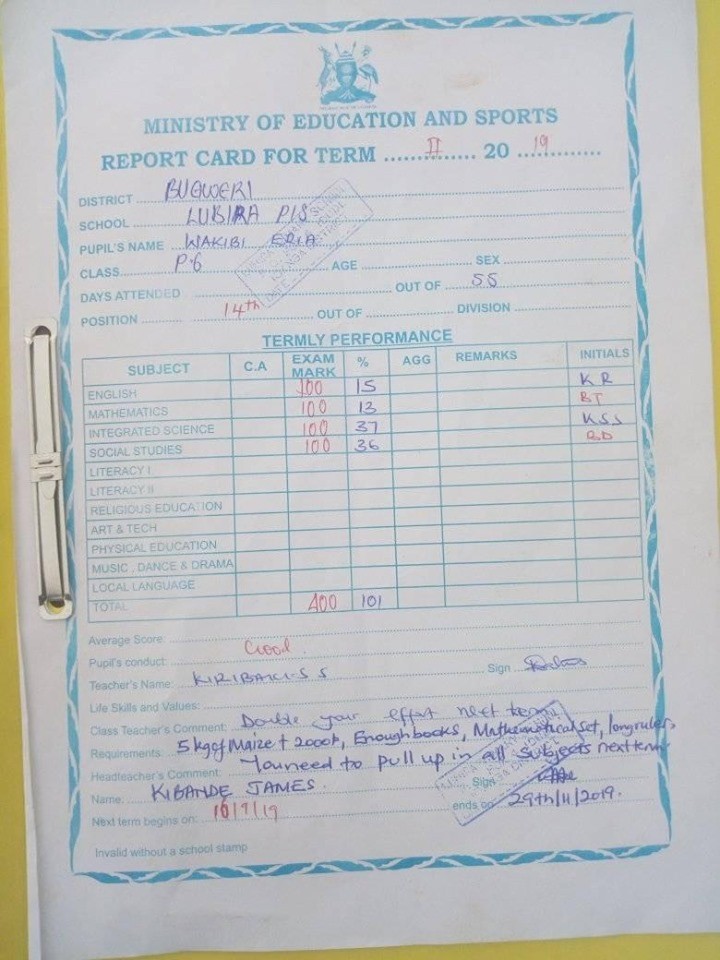 MINISTRY OF EDUCATION AND SPORTS
REPORT CARD FOR TERM II 20 19
DISTRICT BUGWERI
SCHOOL LUBIRA P/S
PUPIL'S NAME WAKIBI ERIA
CLASS P.6 AGE SEX
DAYS ATTENDED OUT OF 55
POSITION 14th OUT OF DIVISION
TERMLY PERFORMANCE
SUBJECT C.A EXAM MARK % AGG REMARKS INITIALS
ENGLISH 100 15 KR
MATHEMATICS 100 13 BT
INTEGRATED SCIENCE 100 37 KSS
SOCIAL STUDIES 100 36
LITERACY I
LITERACY II
RELIGIOUS EDUCATION
ART & TECH
PHYSICAL EDUCATION
MUSIC , DANCE & DRAMA
LOCAL LANGUAGE
TOTAL 400 101
Average Score:
Pupil's conduct: Good
Teacher's Name: Sign
Life Skills and Values:
Class Teacher's Comment: Double your effort next term
Requirements: 5kg of Maize + 2000/=, Enough books, Mathematical set, long ruler.
Headteacher's Comment: You need to pull up in all subjects next term.
Name: KIBANDE JAMES. Sign
Next term begins on: 16/9/19 ends on 29th/11/2019.
Invalid without a school stamp